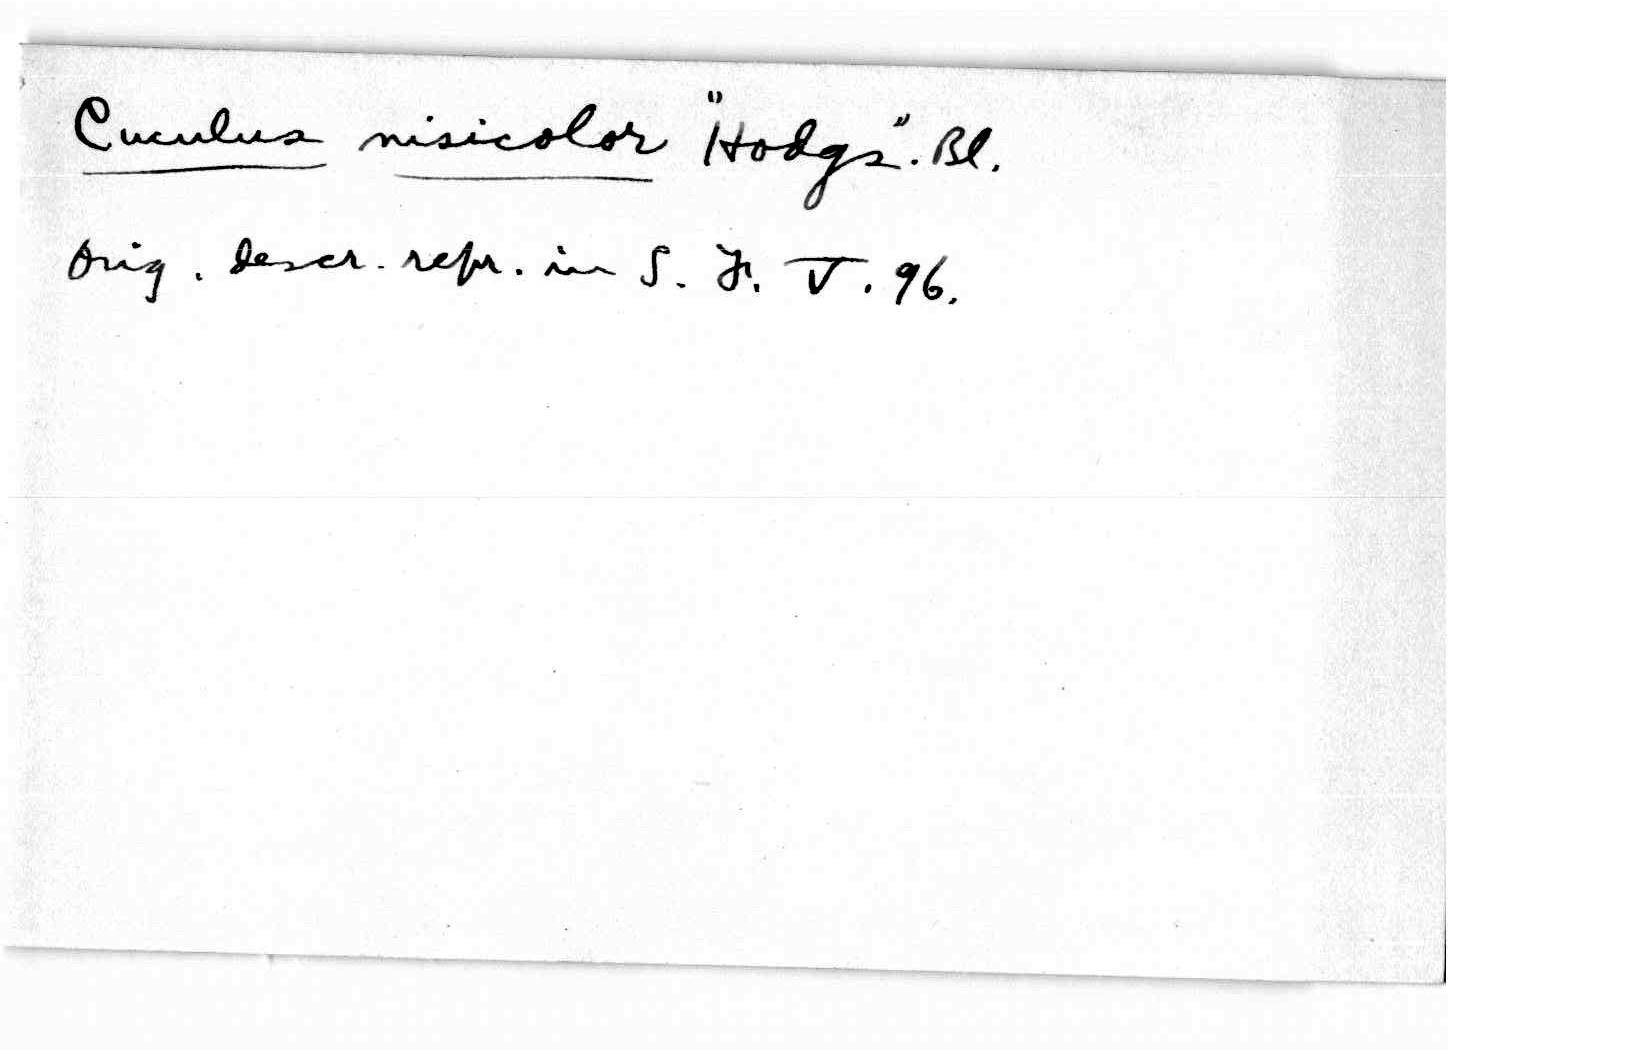 Cuculus nisicolor "Hodgs". Bl.
Orig. descr. repr. in S. F. V. 96.